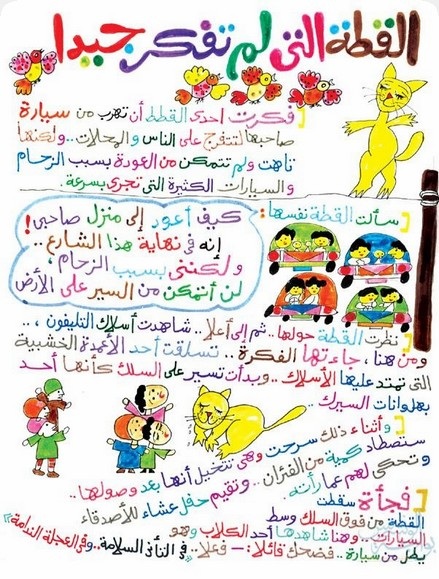 القطة التي لم تفكر جيدا
فكرت احدى القطط أن تهرب من سيارة
صاحبها لتتفرج على الناس والمحلات .. ولكنها
تاهت ولم تتمكن من العودة بسبب الزحام
والسيارات الكثيرة التى تجرى بسرعة .
سألت القطة نفسها :
كيف أعود إلى منزل صاحبى !
إنه فى نهاية هذا الشارع ..
ولكننى بسبب الزحام ،
لن أتمكن من السير على الأرض
نظرت القطة حولها .. ثم إلى أعلا .. شاهدت أسلاك التليفون ..
ومن هنا ، جاءتها الفكرة .. تسلقت أحد الأعمدة الخشبية
التى تمتد عليها الأسلاك .. وبدأت تسير على السلك كأنها أحد
بهلوانات السيرك ..
وأثناء ذلك سرحت وهى تتخيل أنها بعد وصولها ..
ستصطاد كمية من الفئران .. وتقيم حفل عشاء للأصدقاء
وتحكى لهم عما رأته .
فجأة سقطت
القطة من فوق السلك وسط
السيارات .. وهنا شاهدها أحد الكلاب وهو
يطل من سيارة .. فضحك قائلا : - فعلا .. « فى التأنى السلامة .. وفى العجلة الندامة »